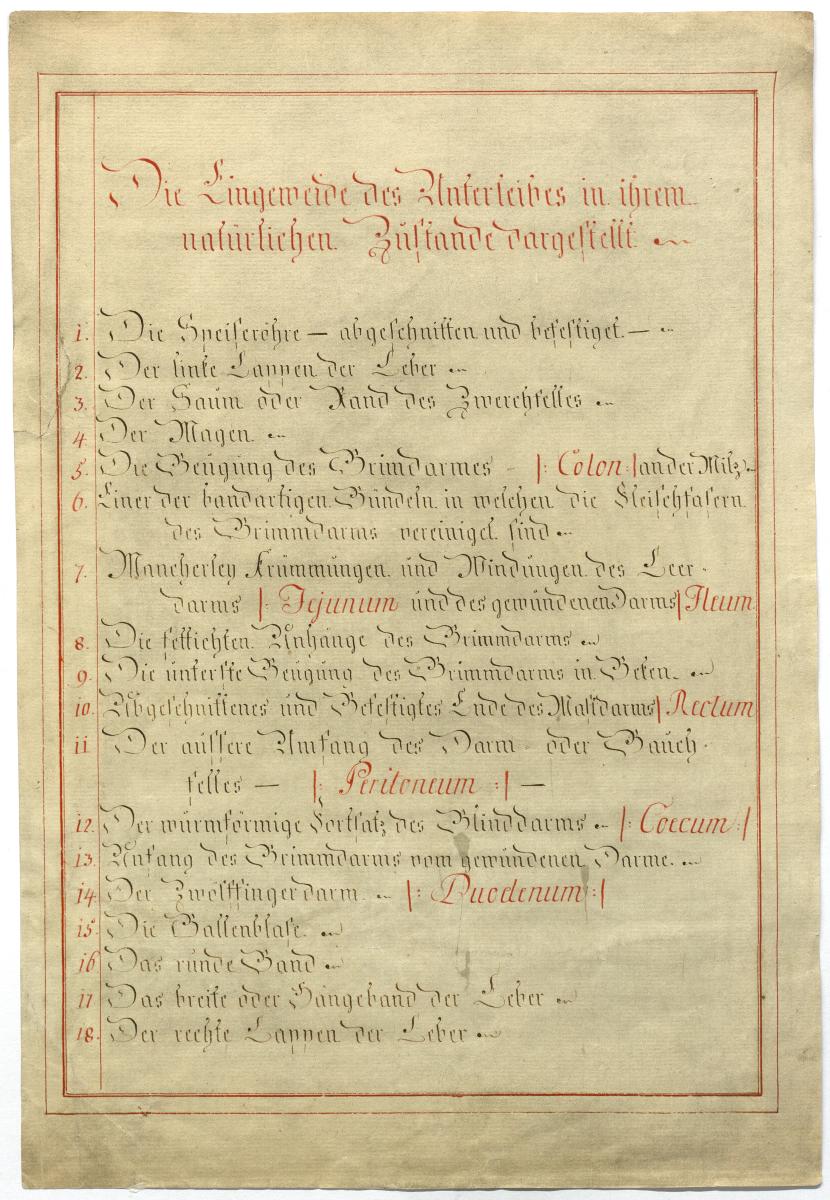 Die Eingeweide des Unterleibes in ihrem
natürlichen Zustande dargestellt.
1. Die Speiseröhre — abgeschnitten und befestiget. —
2. Der linke Lappen der Leber
3. Der Saum oder Rand des Zwerchfelles
4. Der Magen.
5. Die Beugung des Brimdarmes - |: Colon :| an der Milz
6. Einer der bandartigen Bündeln in welchen die Fleischfasern
des Brimmdarms vereiniget sind
7. Mancherley Krümmungen und Windungen des Leer-
darms |: Jejunum und des gewundenen Darms| Ileum.
8. Die fettichten Anhänge des Brimmdarms
9. Die unterste Beugung des Brimmdarms in Beken.
10. Abgeschnittenes und Befestigtes Ende des Mastdarms| Rectum
11 Der äussere Umfang des Darm- oder Bauch-
felles — |: Peritoneum :| —
12. Der wurmförmige Fortsatz des Blinddarms |: Coecum :|
13. Anfang des Brimmdarms vom gewundenen Darme.
14. Der Zwölffingerdarm. |: Duodenum :|
15. Die Gallenblase.
16 Das runde Band
17 Das breite oder Hängeband der Leber
18. Der rechte Lappen der Leber